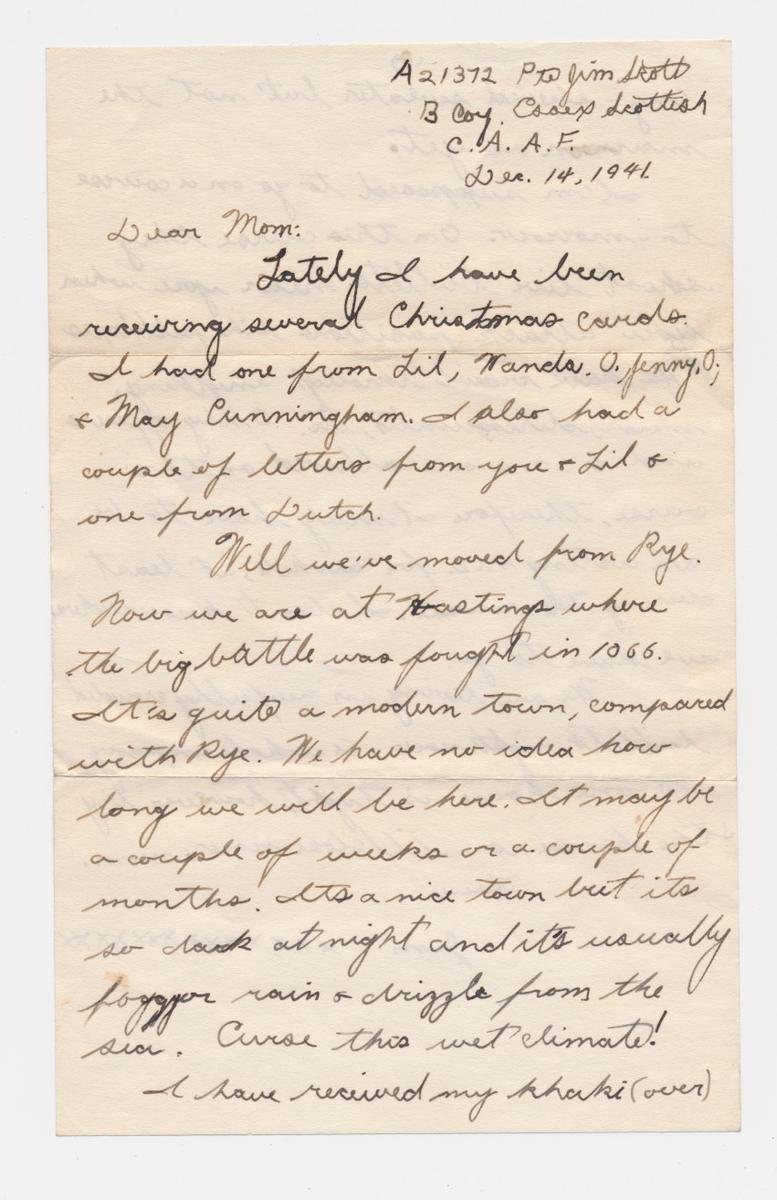 A21372 Pte Jim Scott
B Coy. Essex Scottish
C. A. A. F.
Dec. 14, 1941.
Dear Mom:
Lately I have been
receiving several Christmas cards.
I had one from Lil, Wanda. O. Jenny, O;
& May Cunningham. I also had a
couple of letters from you & Lil &
one from Dutch.
Well we've moved from Rye.
Now we are at Hastings where
the big battle was fought in 1066.
It's quite a modern town, compared
with Rye. We have no idea how
long we will be here. It may be
a couple of weeks or a couple of
months. Its a nice town but its
so dark at night and it's usually
foggy or rain & drizzle from the
sea. Curse this wet climate!
I have received my khaki (over)